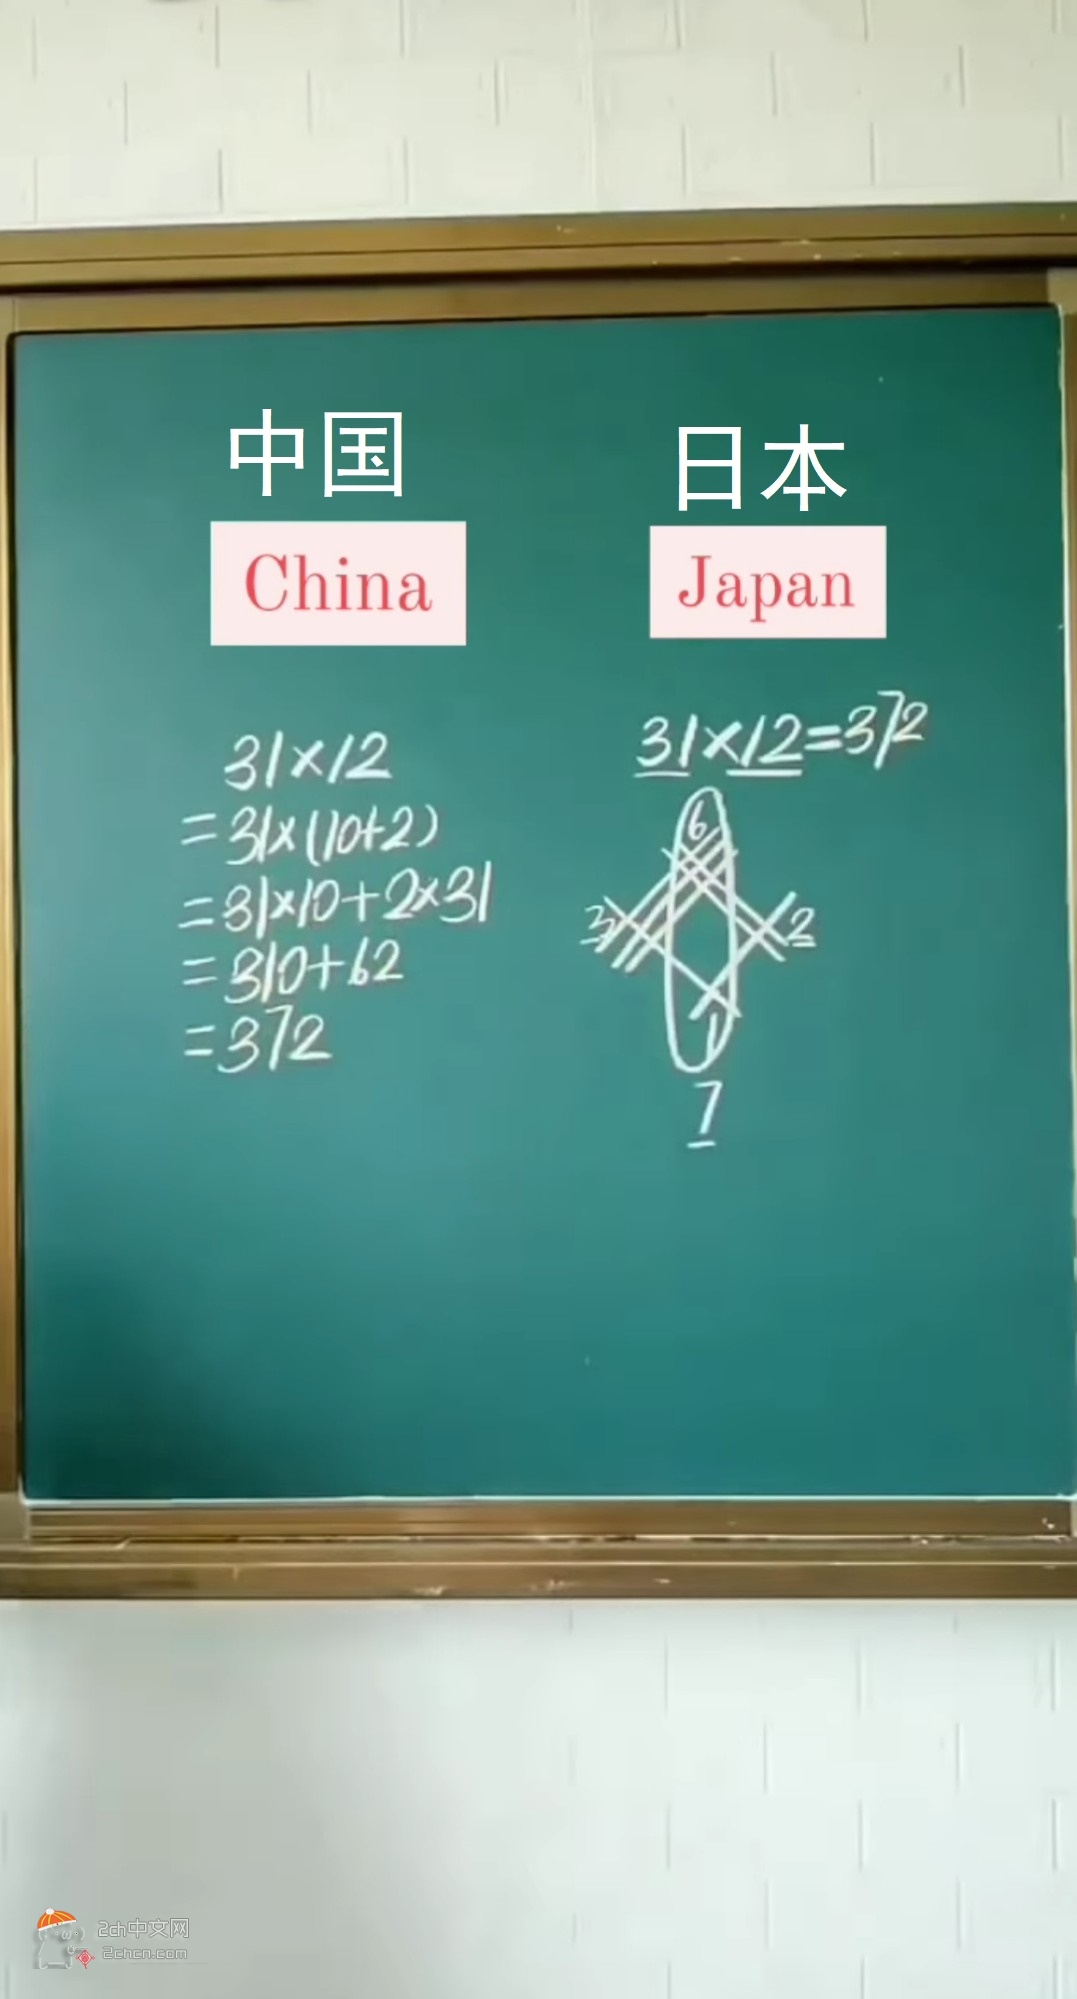 中国
China
31×12
=31×(10+2)
=31×10+2×31
=310+62
=372
日本
Japan
31×12=372
6
3
2
1
7
2ch中文网
2chcn.com